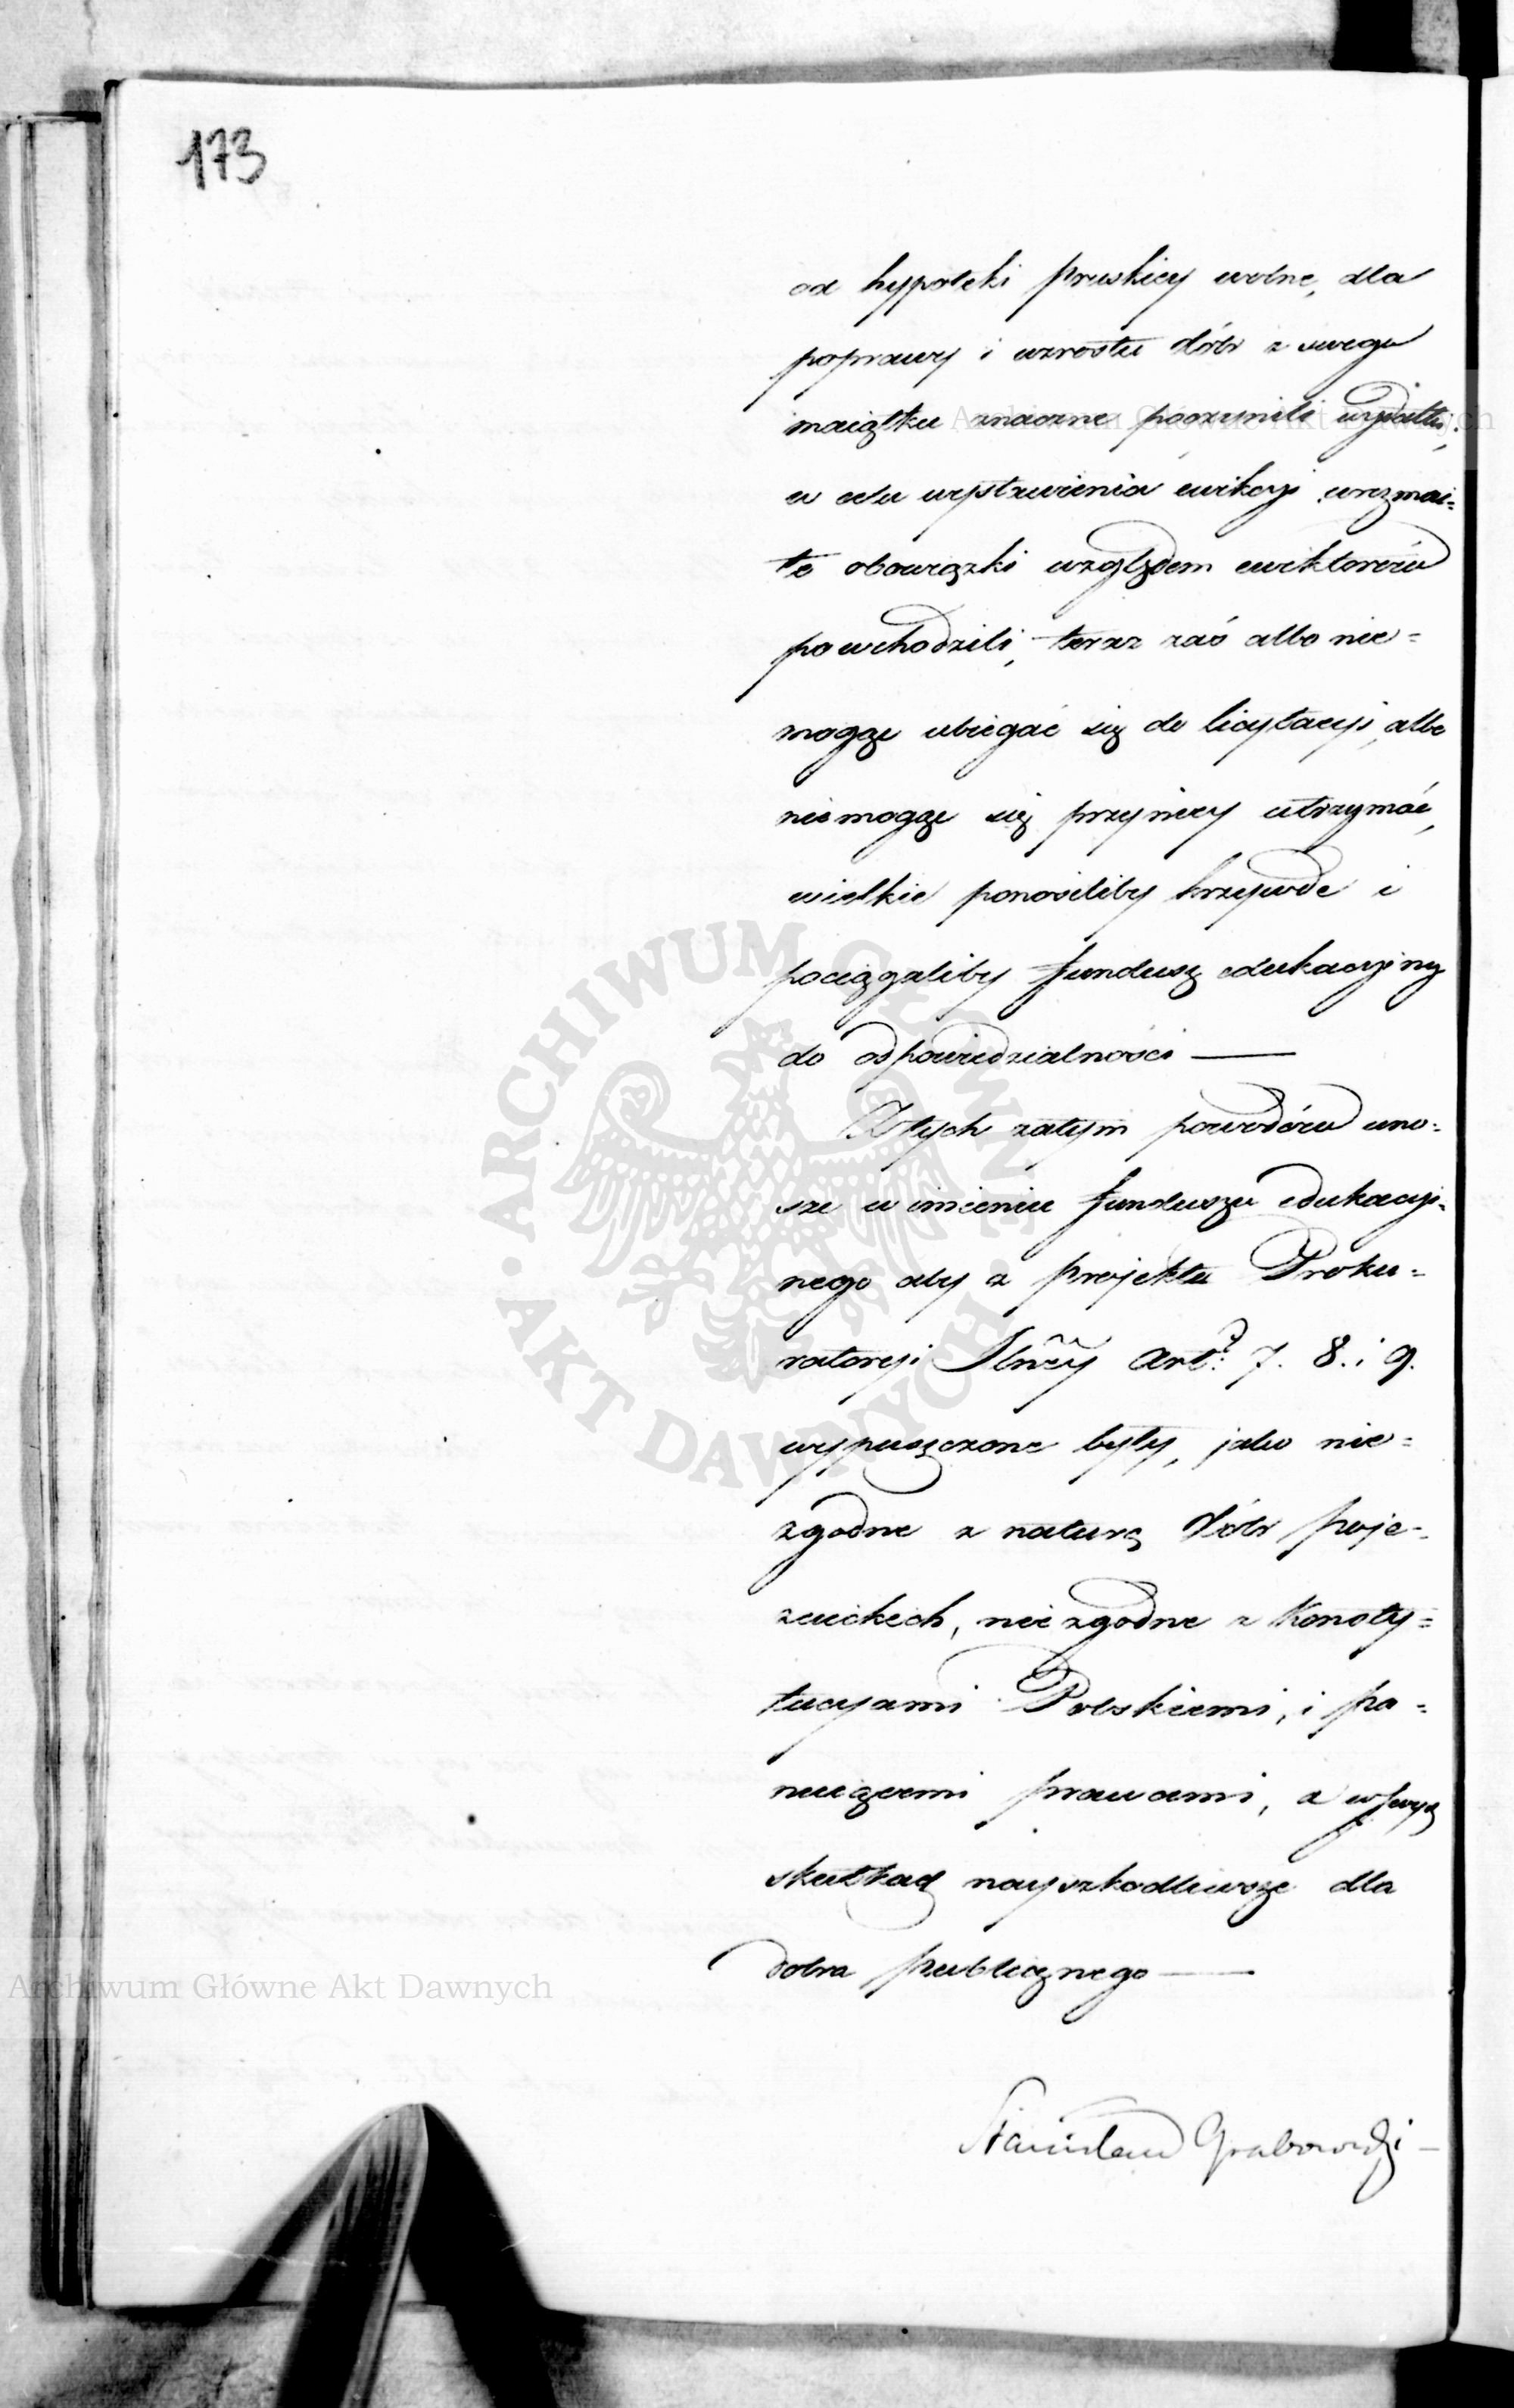 173
od hypoteki pruskiey wolne, dla
poprawy i wzrostu dóbr z swego
maiątku znaczne poczynili wydatki,
w celu wystawienia ewikcyi urozmai=
te obowiązki względem ewiktorów
powchodzili, teraz zaś albo nie=
mogąc ubiegać się do licytacyi, albo
niemogąc się przyniey utrzymać,
wielkie ponosiliby krzywde i
pociągaliby fundusz edukacyjny
do odpowiedzialności —
Z tych zatym powodów wno=
sze w imieniu funduszu edukacyj=
nego aby z projektu Proku=
ratoryi Art: 7. 8. i 9.
wypuszczone były, jako nie=
zgodne z naturą dóbr poje=
zuickich, niezgodne z Konsty=
tucyami Polskiemi, i pa=
nuiącemi prawami, a w swych
skutkach nayszkodliwsze dla
dobra publicznego —
Stanisław Grabowski —
ARCHIWUM GŁÓWNE
AKT DAWNYCH
Archiwum Główne Akt Dawnych
Archiwum Główne Akt Dawnych